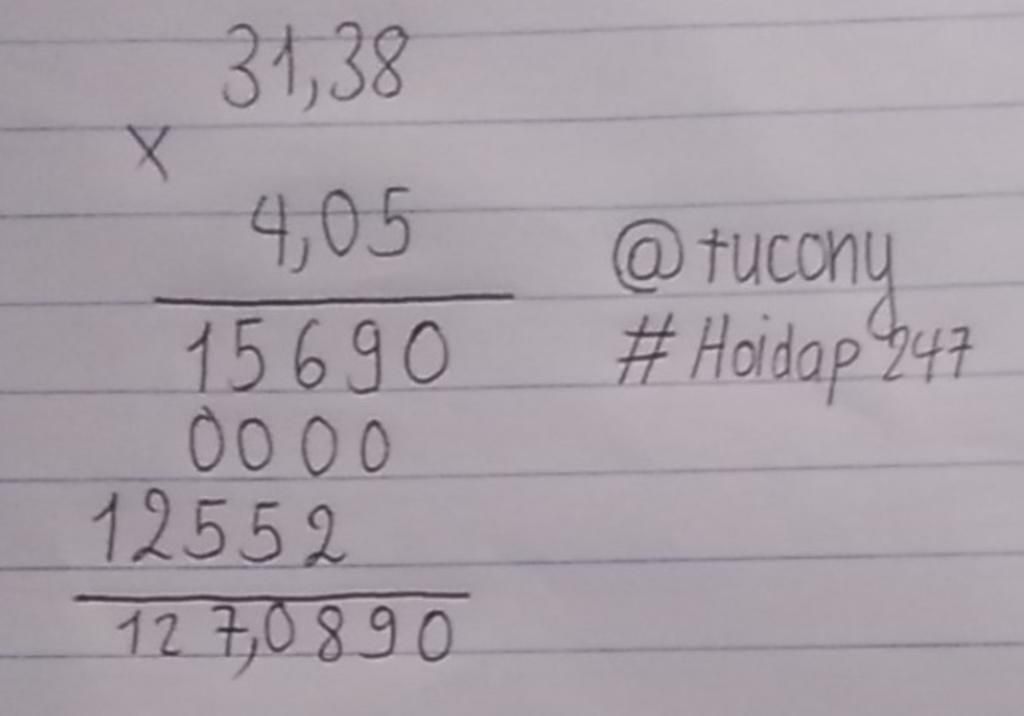 31,38
×
4,05
15690
0000
12552
127,0890
@tucony
#Hoidap247